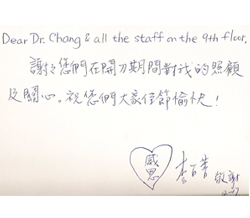 Dear Dr. Chang & all the staff on the 9th floor,
謝謝您們在開刀期間對我的照顧
及關心。祝您們大家佳節愉快!
感恩
李 敬謝